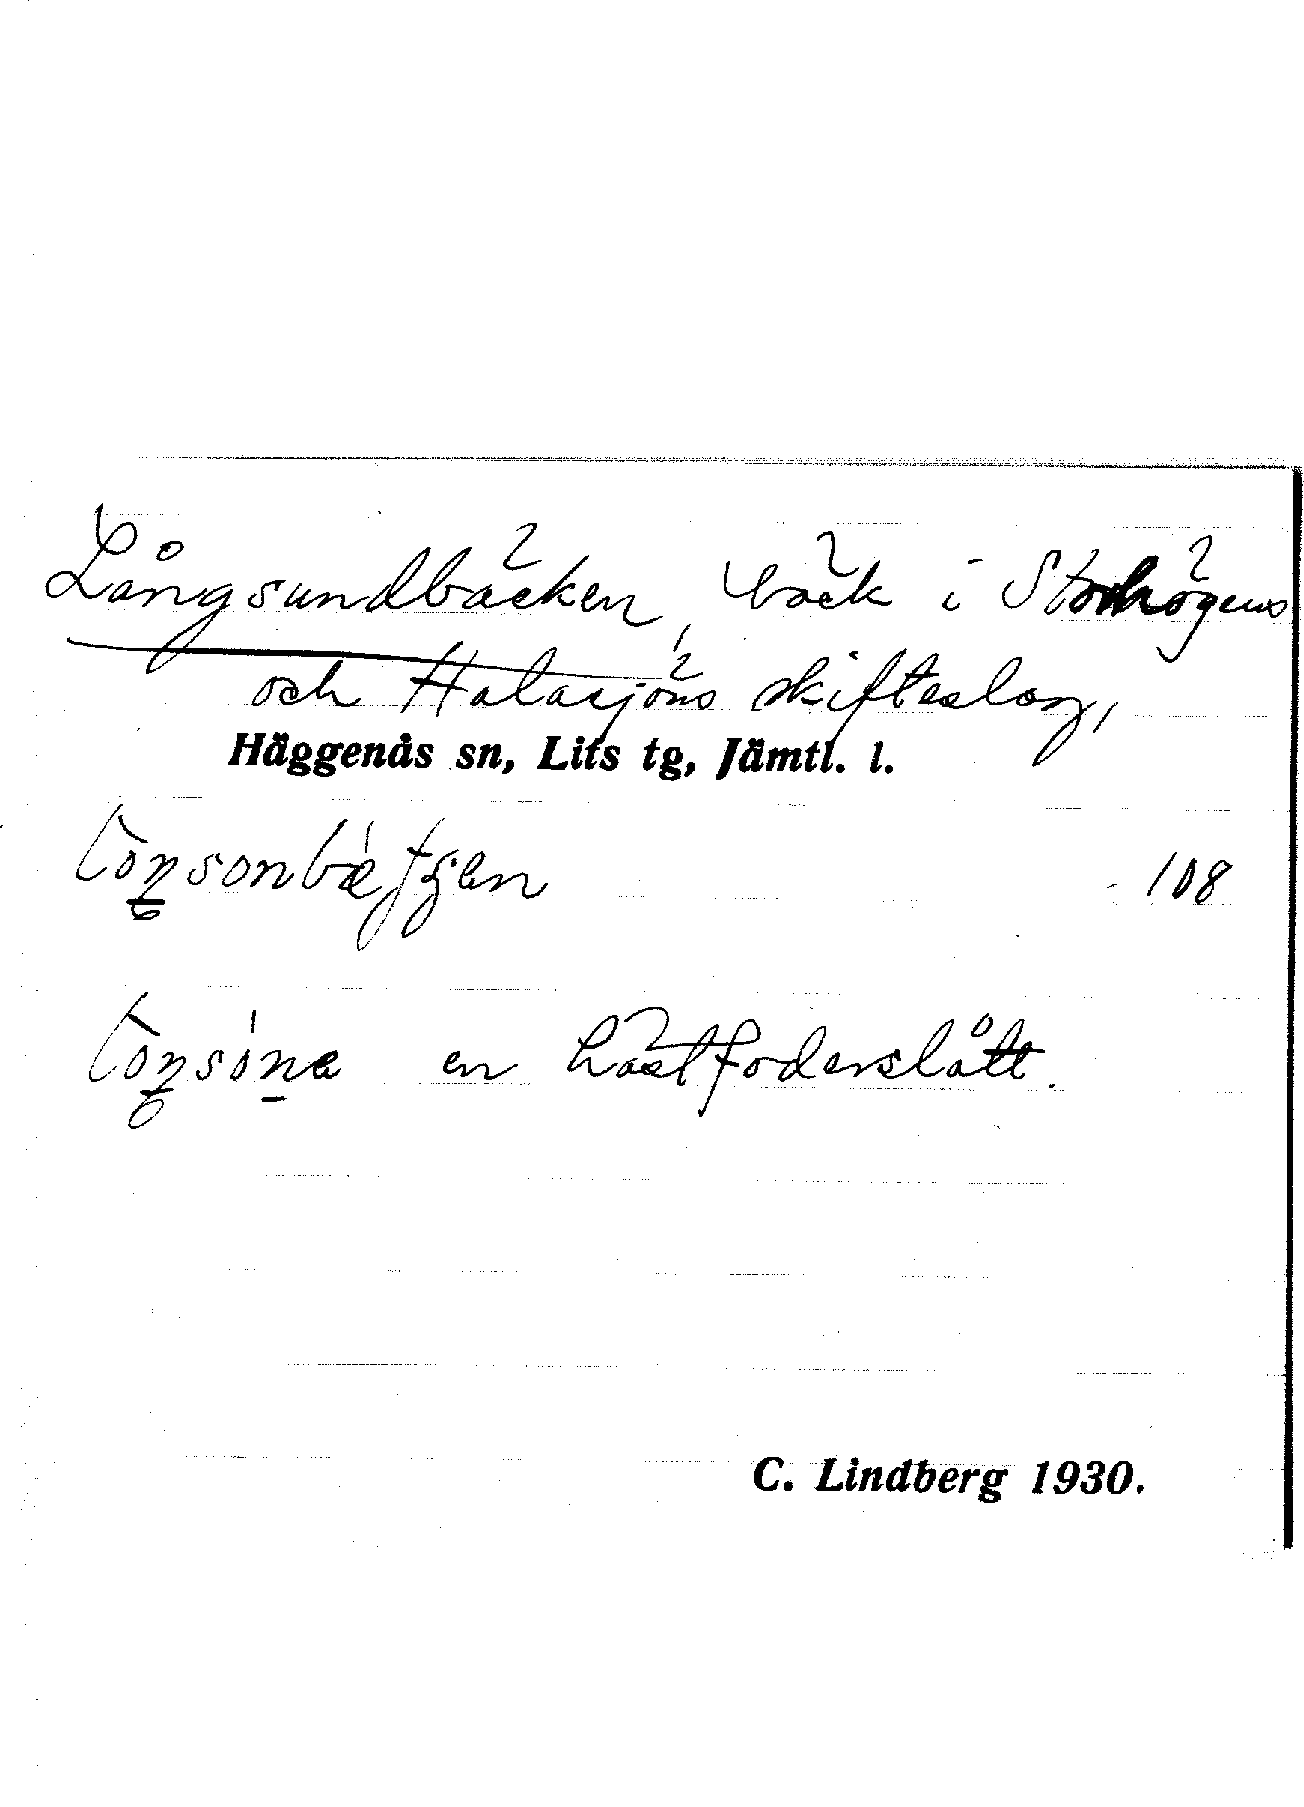 Långsundbäcken, bäck i Storhögens
och Halasjöns skifteslag,
Häggenås sn, Lits tg, Jämtl. l.
108
en hästfoderslått.
C. Lindberg 1930.